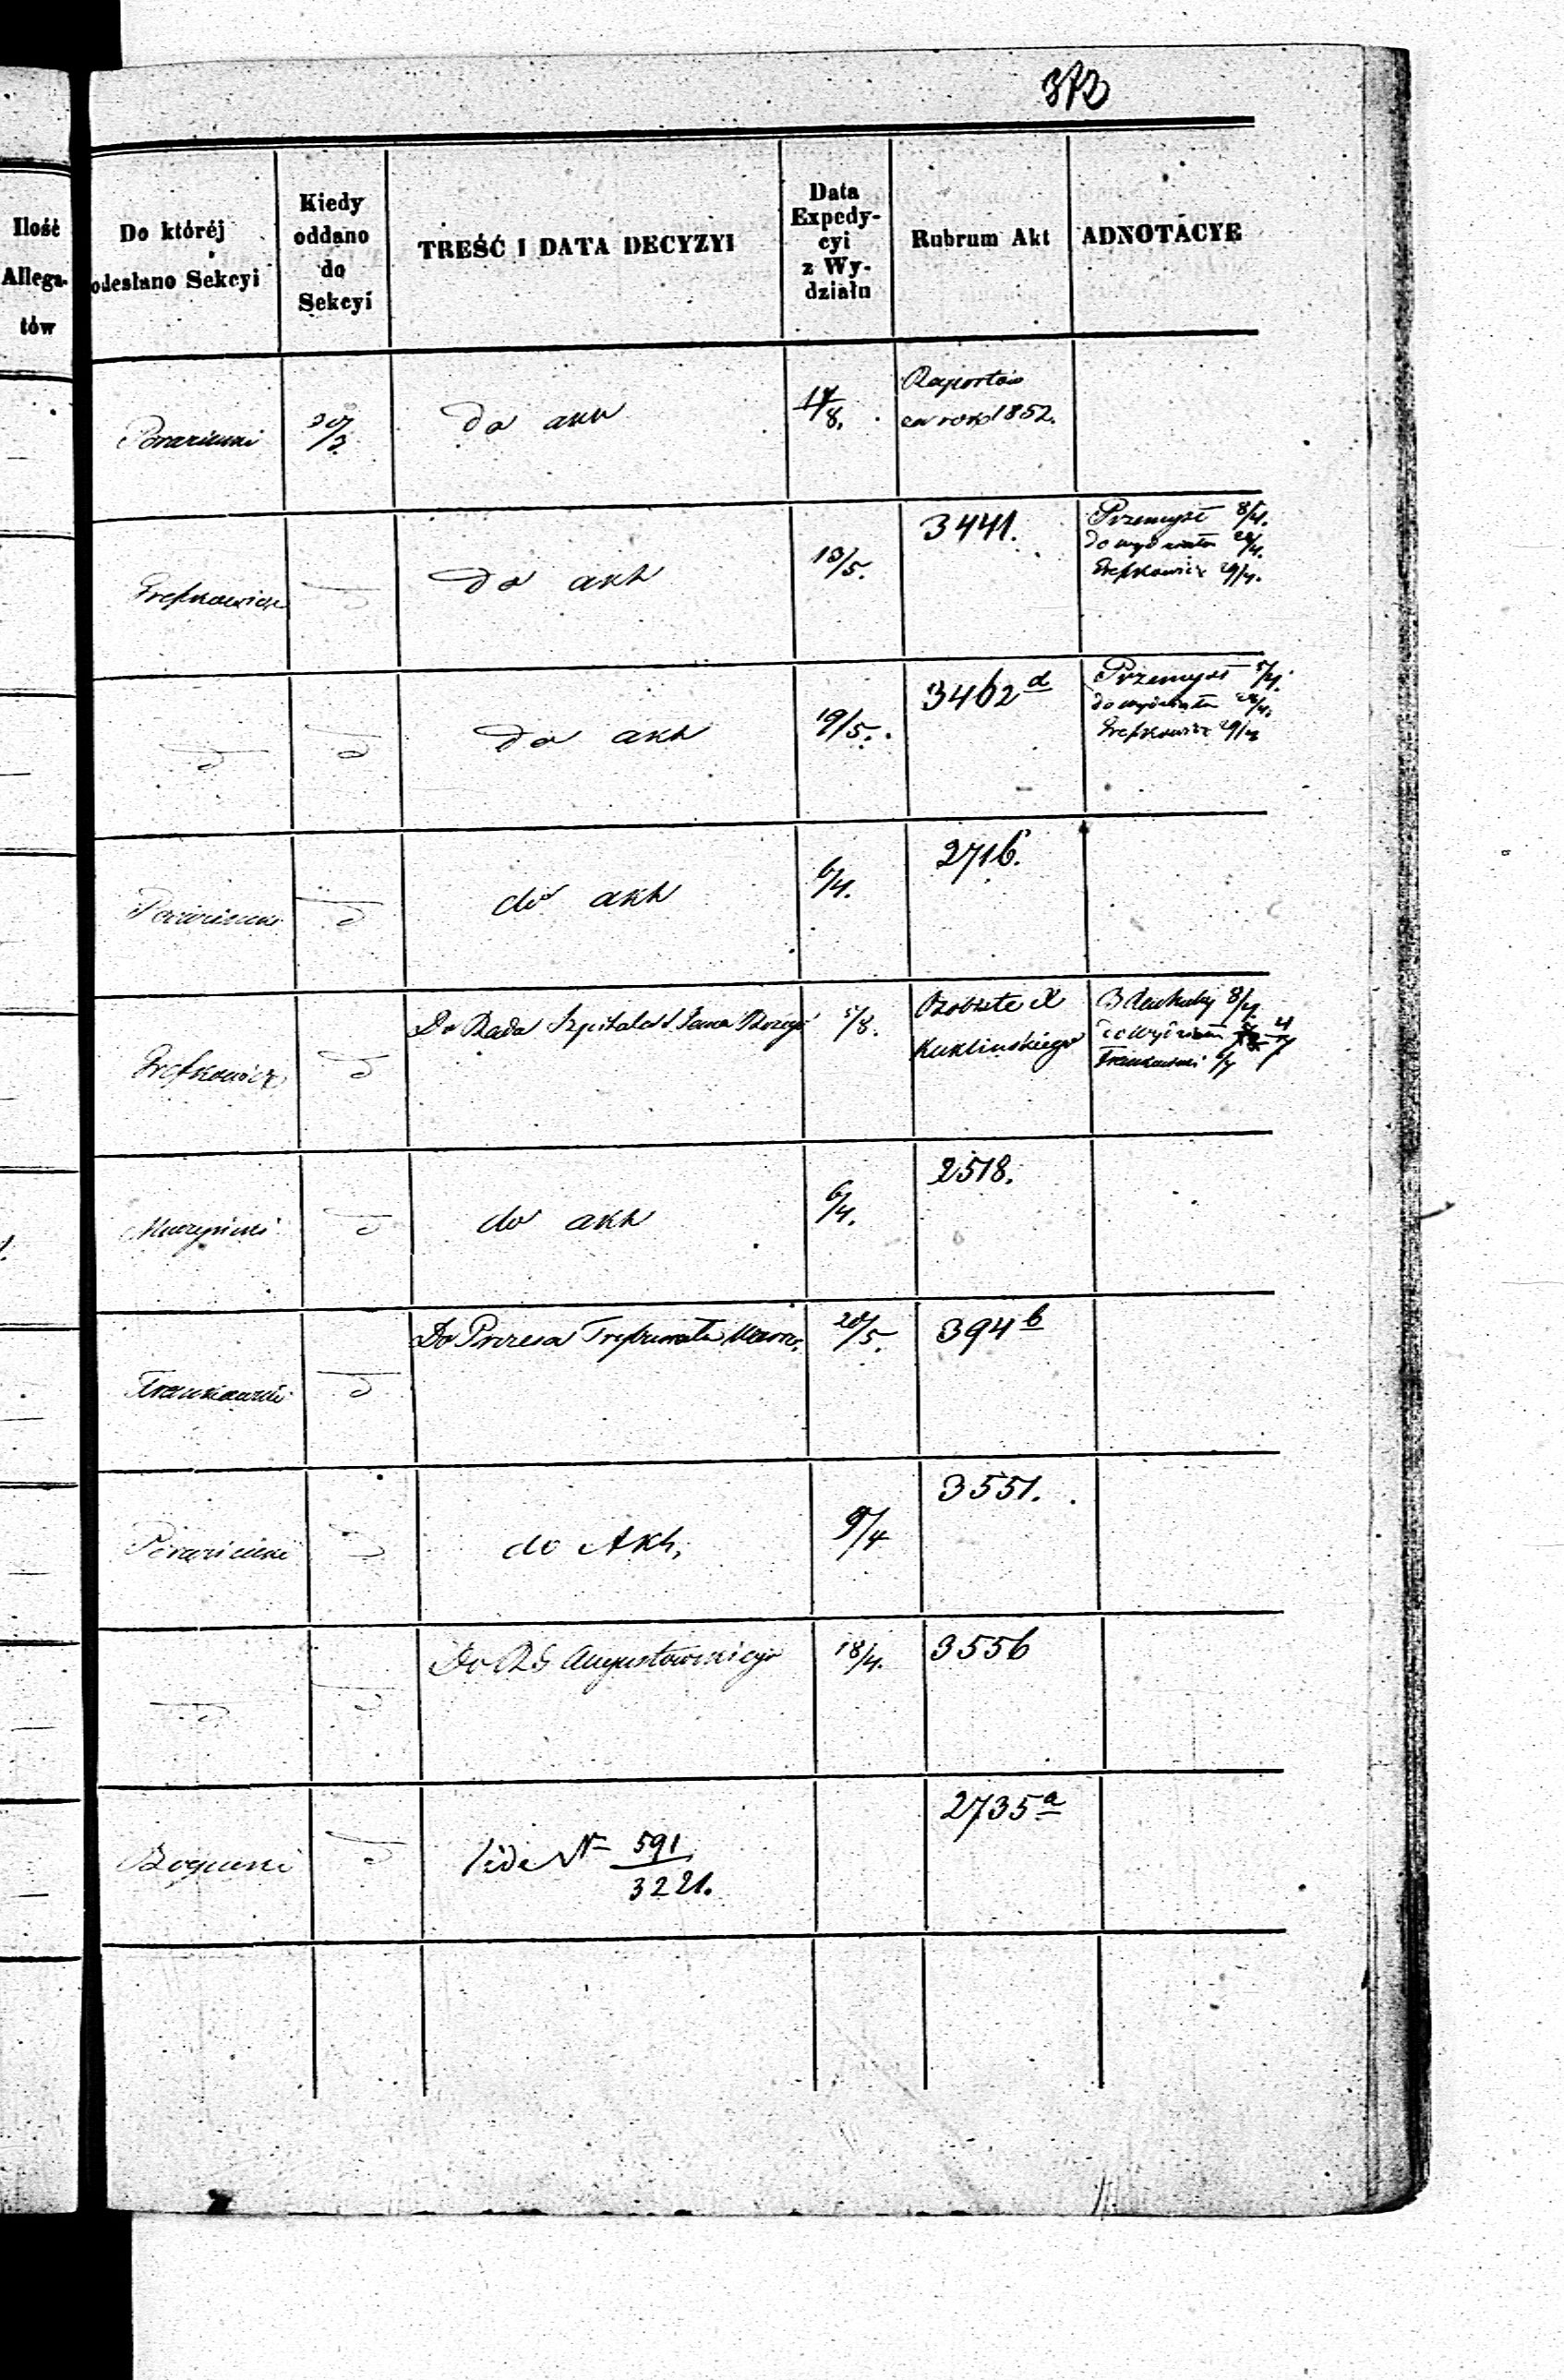 372
Ilość
Allega-
tów
Do któréj
odesłano Sekcyi
Kiedy
oddano
do
Sekcyi
TREŚĆ I DATA DECYZYI
Data
Expedy-
cyi
z Wy-
działu
Rubrum Akt
ADNOTACYE
30/3
do akt
17/8.
Raportów
za rok 1852.
Grefkowicz
do akt
13/5.
3441.
Przemysł 8/4.
do wydziału 28/4.
Grefkowicz 29/4.
do akt
19/5.
3462 d
Przemysł 5/4.
do wydziału 28/4.
Grefkowicz 29/4
do akt
6/4.
2716.
Grefkowicz
Do Rada Szpitala Jana Bożego
5/8.
Osobiste X
Kuklińskiego
8/4
do wydziału
Frankowski 6/7
do akt
6/4.
2518.
Frankowski
Do Prezesa Trybunału Warsz.
20/5.
394 b
do Akt,
9/4
3551.
Do R G Augustowskiego
18/4.
3556
Boguski
Vide N 591
3221.
2735 a